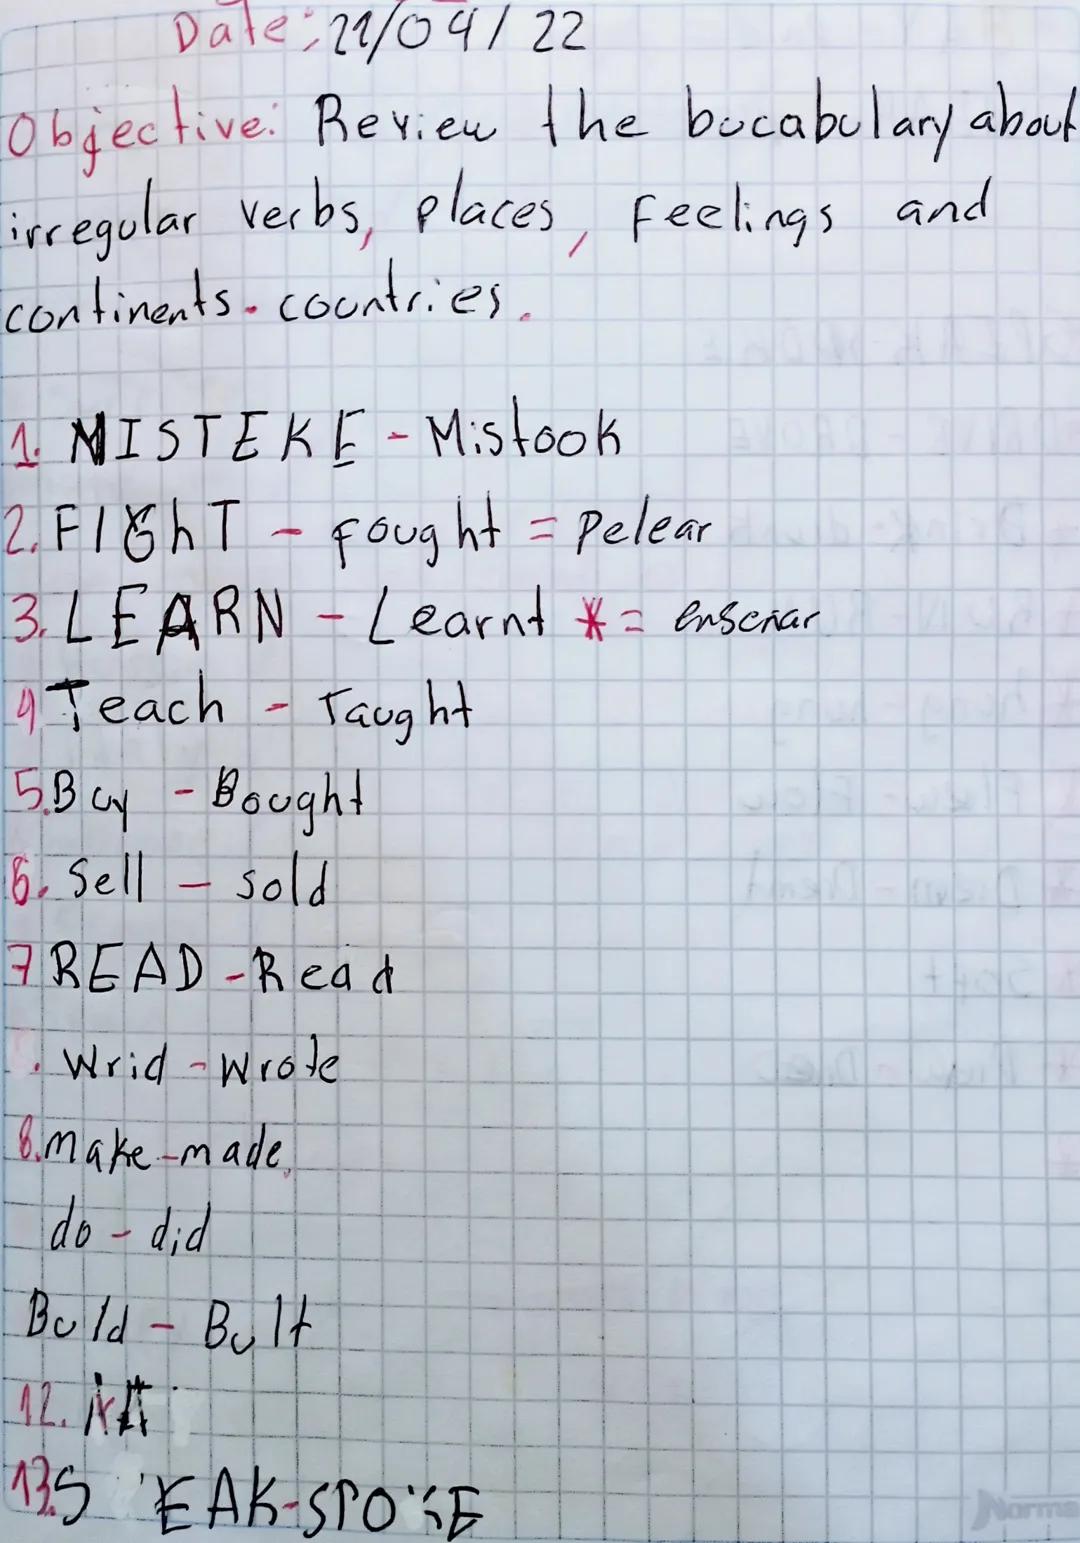 Date: 21/04/22
Objective: Review the bucabulary about
irregular verbs, places, Feelings and
continents. countries.
1. MISTEKE - Mistook
2. FIGhT - fought = Pelear
3. LEARN - Learnt * = enseñar
4 Teach - Taught
5. Buy - Bought
6. Sell - sold
7 READ - Read
. Wrid - Wrote
8. make - made
do - did
Buld - Bult
12.
13. S EAK - SPOKE
Norma